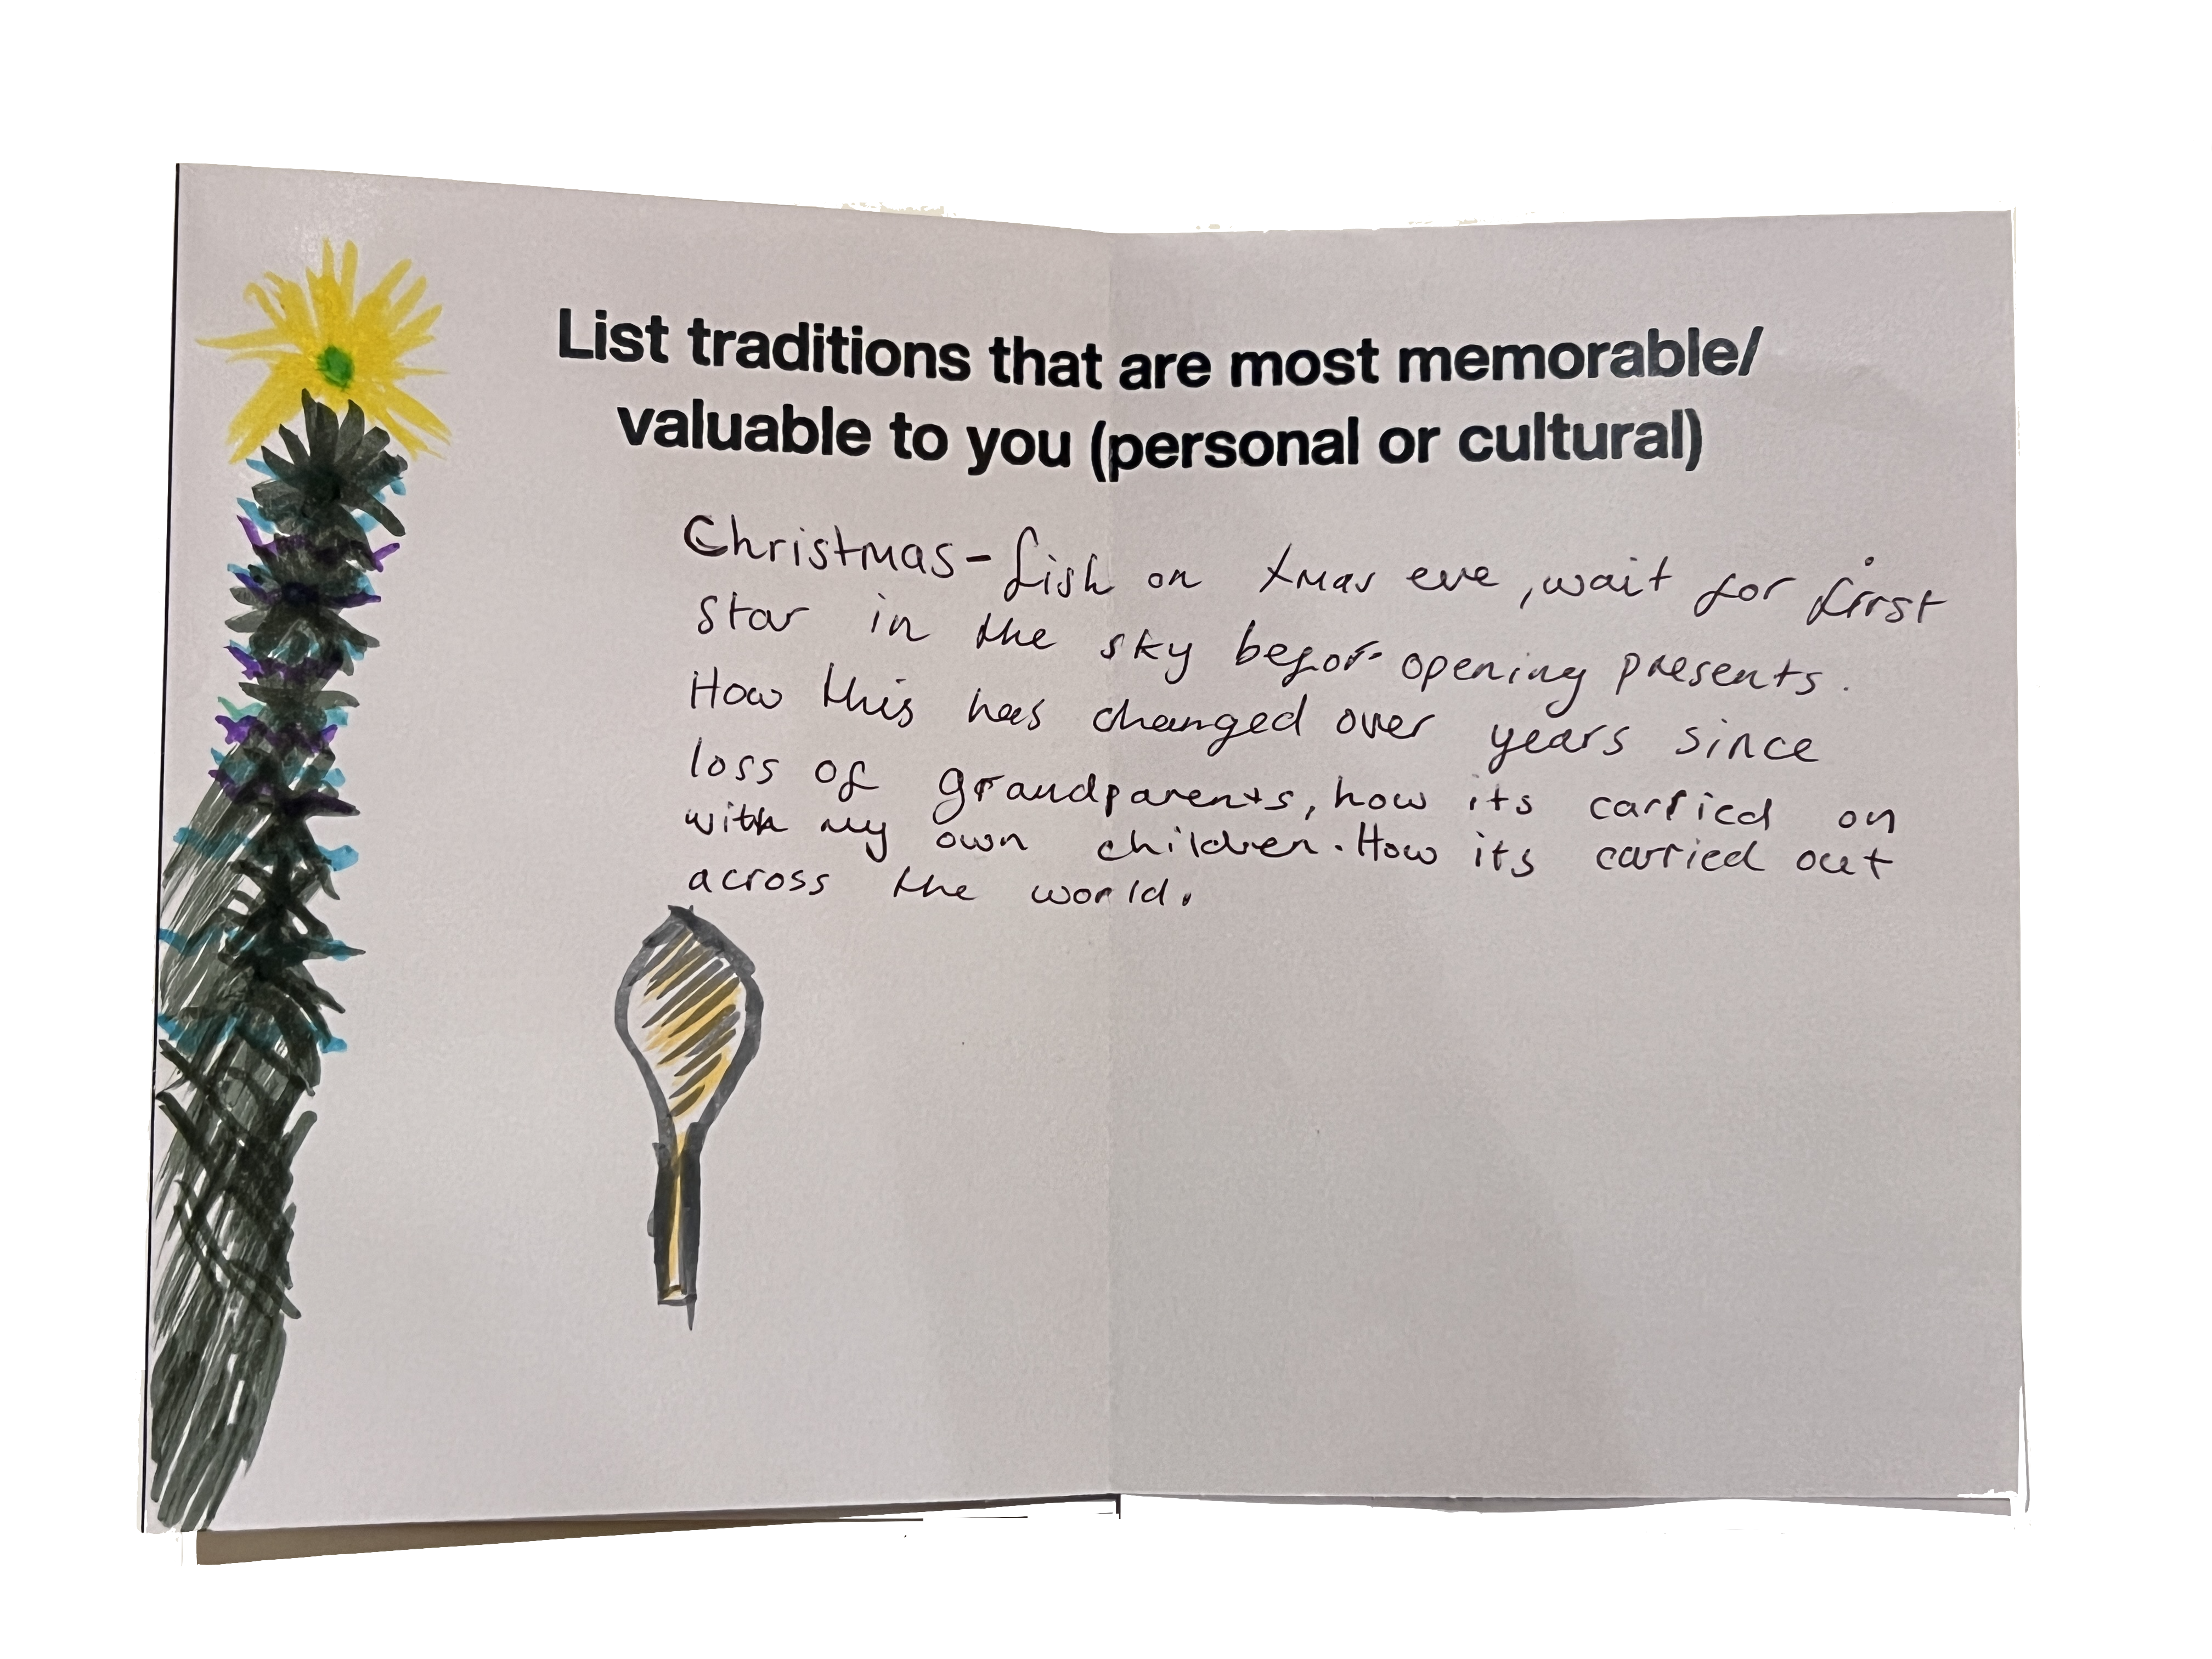 List traditions that are most memorable/
valuable to you (personal or cultural)
Christmas - fish on Xmas eve, wait for first
star in the sky befor opening presents.
How this has changed over years since
loss of grandparents, how its carried on
with my own children. How its carried out
across the world.